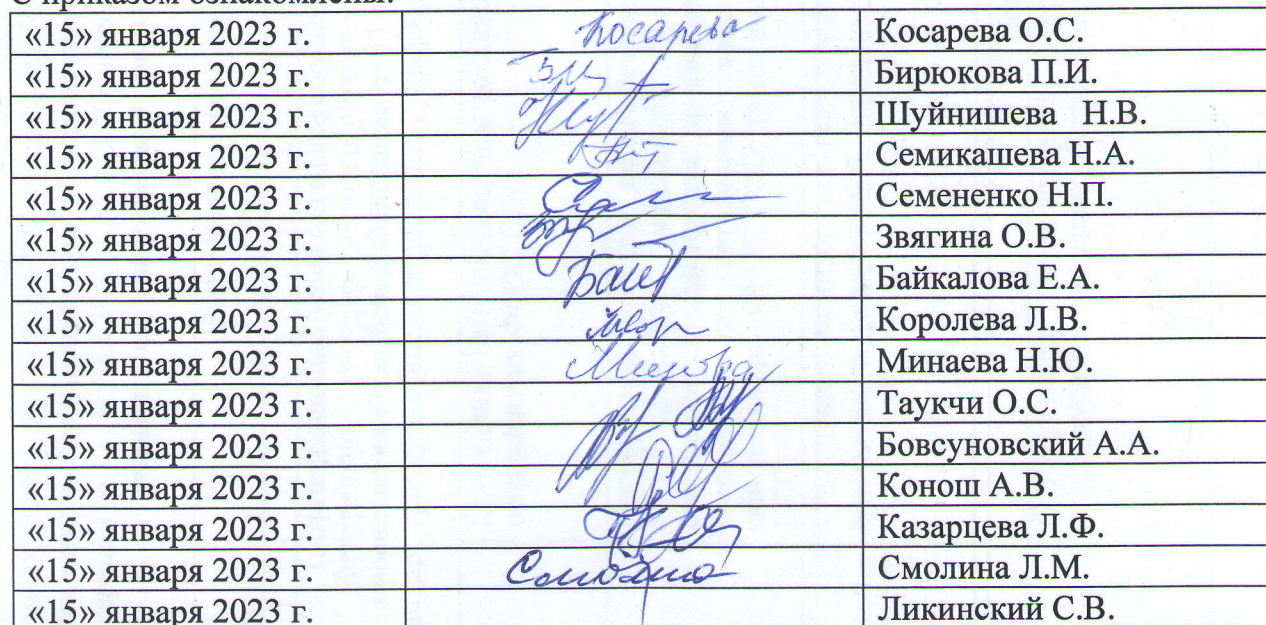 С приказом ознакомлены:
«15» января 2023 г. Косарева Косарева О.С.
«15» января 2023 г. Бирюкова П.И.
«15» января 2023 г. Шуйнишева Н.В.
«15» января 2023 г. Семикашева Н.А.
«15» января 2023 г. Семененко Н.П.
«15» января 2023 г. Звягина О.В.
«15» января 2023 г. Байкалова Е.А.
«15» января 2023 г. Королева Л.В.
«15» января 2023 г. Минаева Н.Ю.
«15» января 2023 г. Таукчи О.С.
«15» января 2023 г. Бовсуновский А.А.
«15» января 2023 г. Конош А.В.
«15» января 2023 г. Казарцева Л.Ф.
«15» января 2023 г. Смолина Л.М.
«15» января 2023 г. Ликинский С.В.